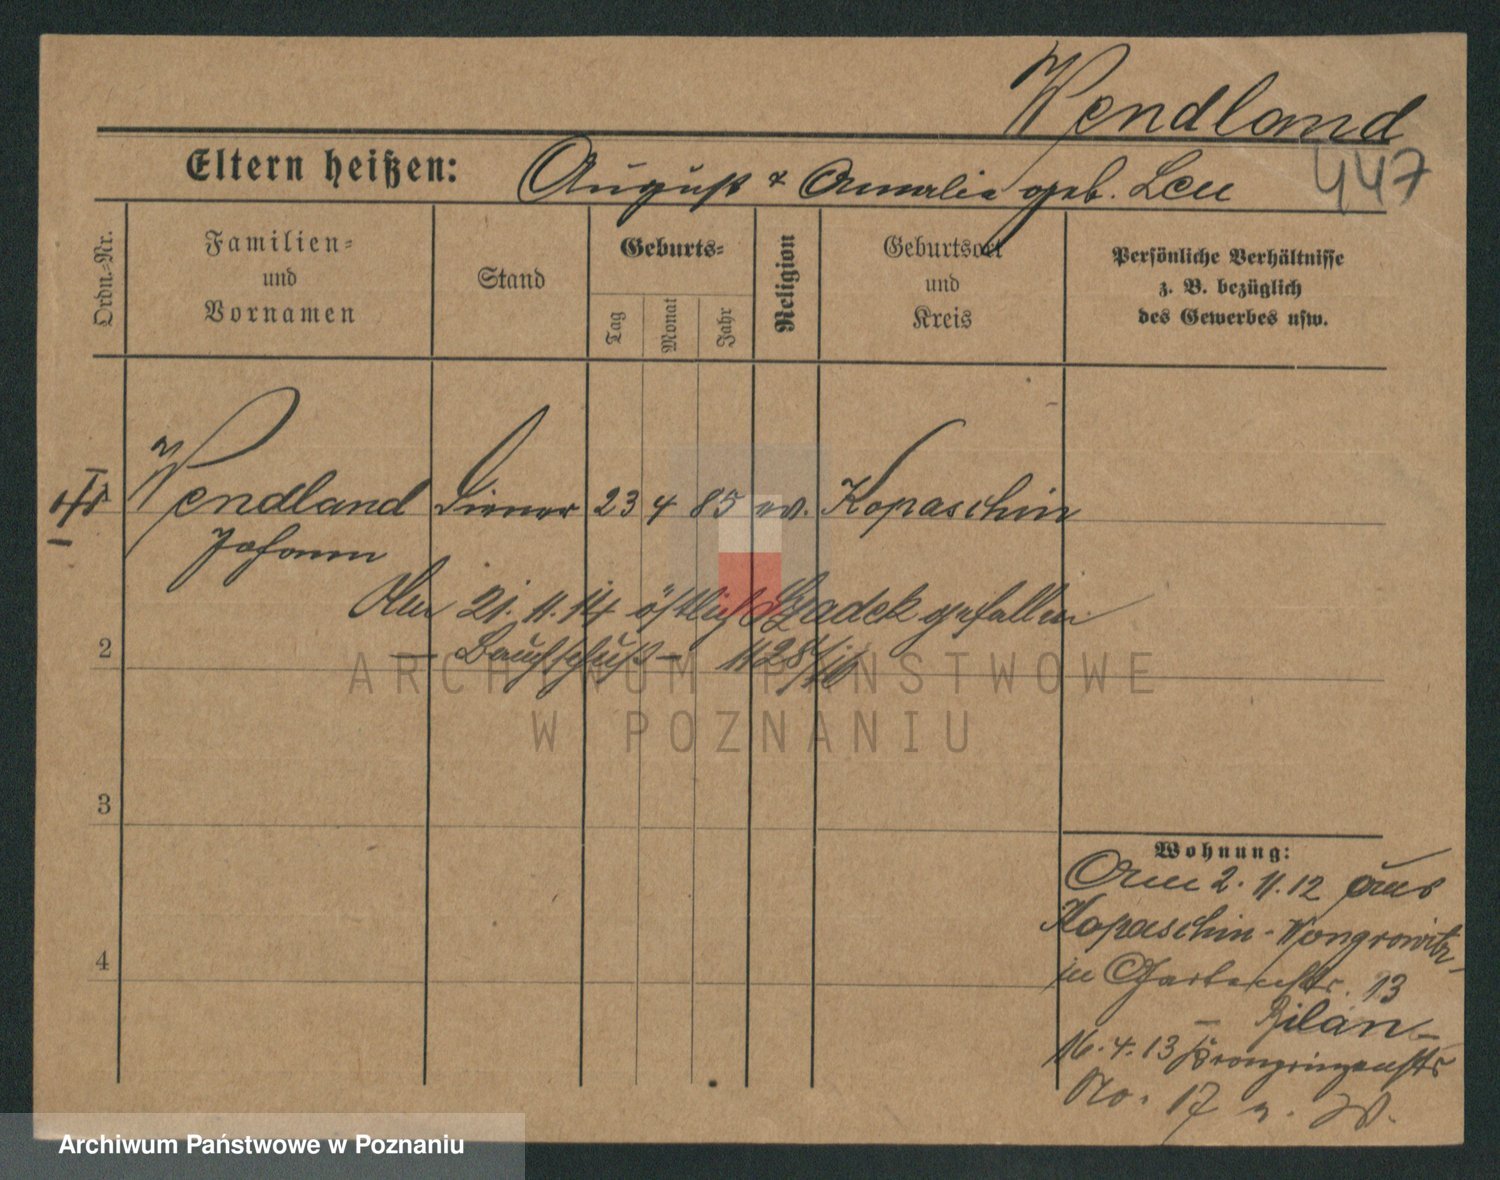 Wendland
447
Eltern heißen: August & Amalia geb. Leu
Ordn.-Nr.
Familien-
und
Vornamen
Stand
Geburts-
Tag
Monat
Jahr
Religion
Geburtsort
und
Kreis
Persönliche Verhältnisse
z. B. bezüglich
des Gewerbes usw.
Wendland Diener 23 4 85 ev. Kopaschin
Johann
Am 21. 11. 14 östlich Szadek gefallen
— Bauchschuß —
2
3
4
Wohnung:
Am 2. 11. 12 aus
Kopaschin - Wongrowitz
in Gartenstr. 13
Bilan
16. 4. 13 Kronprinzenstr
No. 17
ARCHIWUM PAŃSTWOWE
W POZNANIU
Archiwum Państwowe w Poznaniu